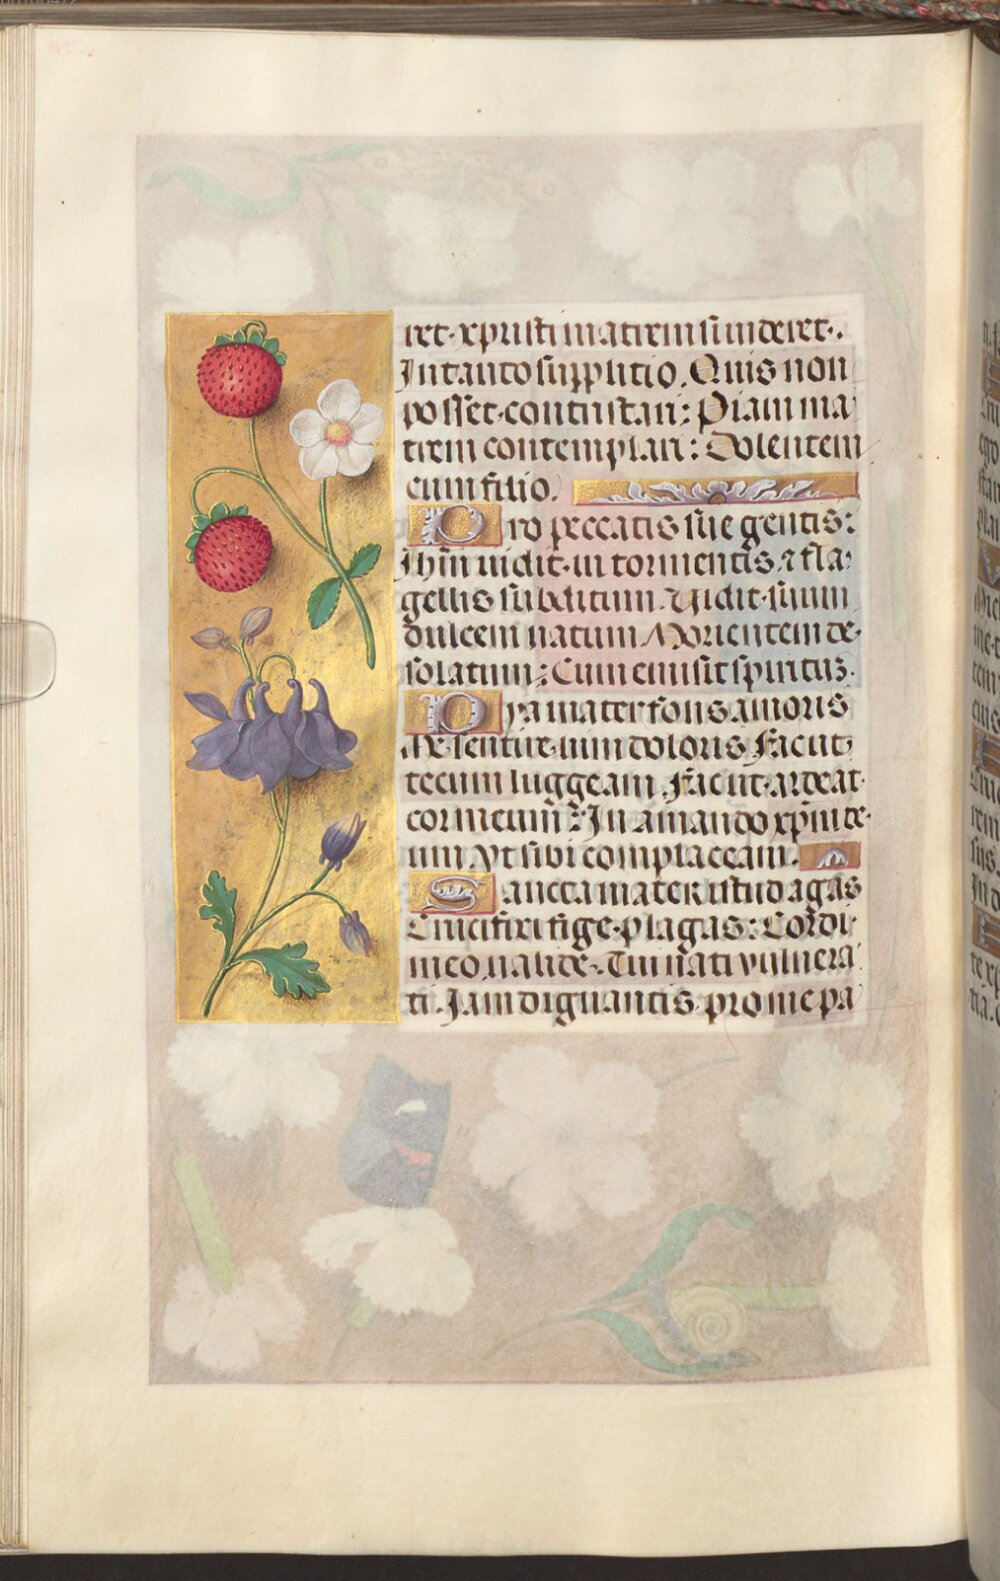 ret. xpristi matrem si videret.
In tanto supplitio. Quis non
posset. contristari: Piam ma
trem contemplari: Dolentem
cum filio.
Pro peccatis sue gentis:
Jhm vidit. in tormentis. ⁊ fla
gellis subditum. Vidit. suum
dulcem natum Morientem de
solatum: Cum emisit spiritus.
Pya mater fons amoris
Me sentire. vim doloris Fac ut
tecum luggeam. Fac ut. ardeat.
cor meum: In amando xpm de
um. Vt sibi complaceam.
Sancta mater istud agas
Crucifixi fige. plagas: Cordi
meo. valide. Tui nati vulnera
ti. Jam dignantis. pro me pa